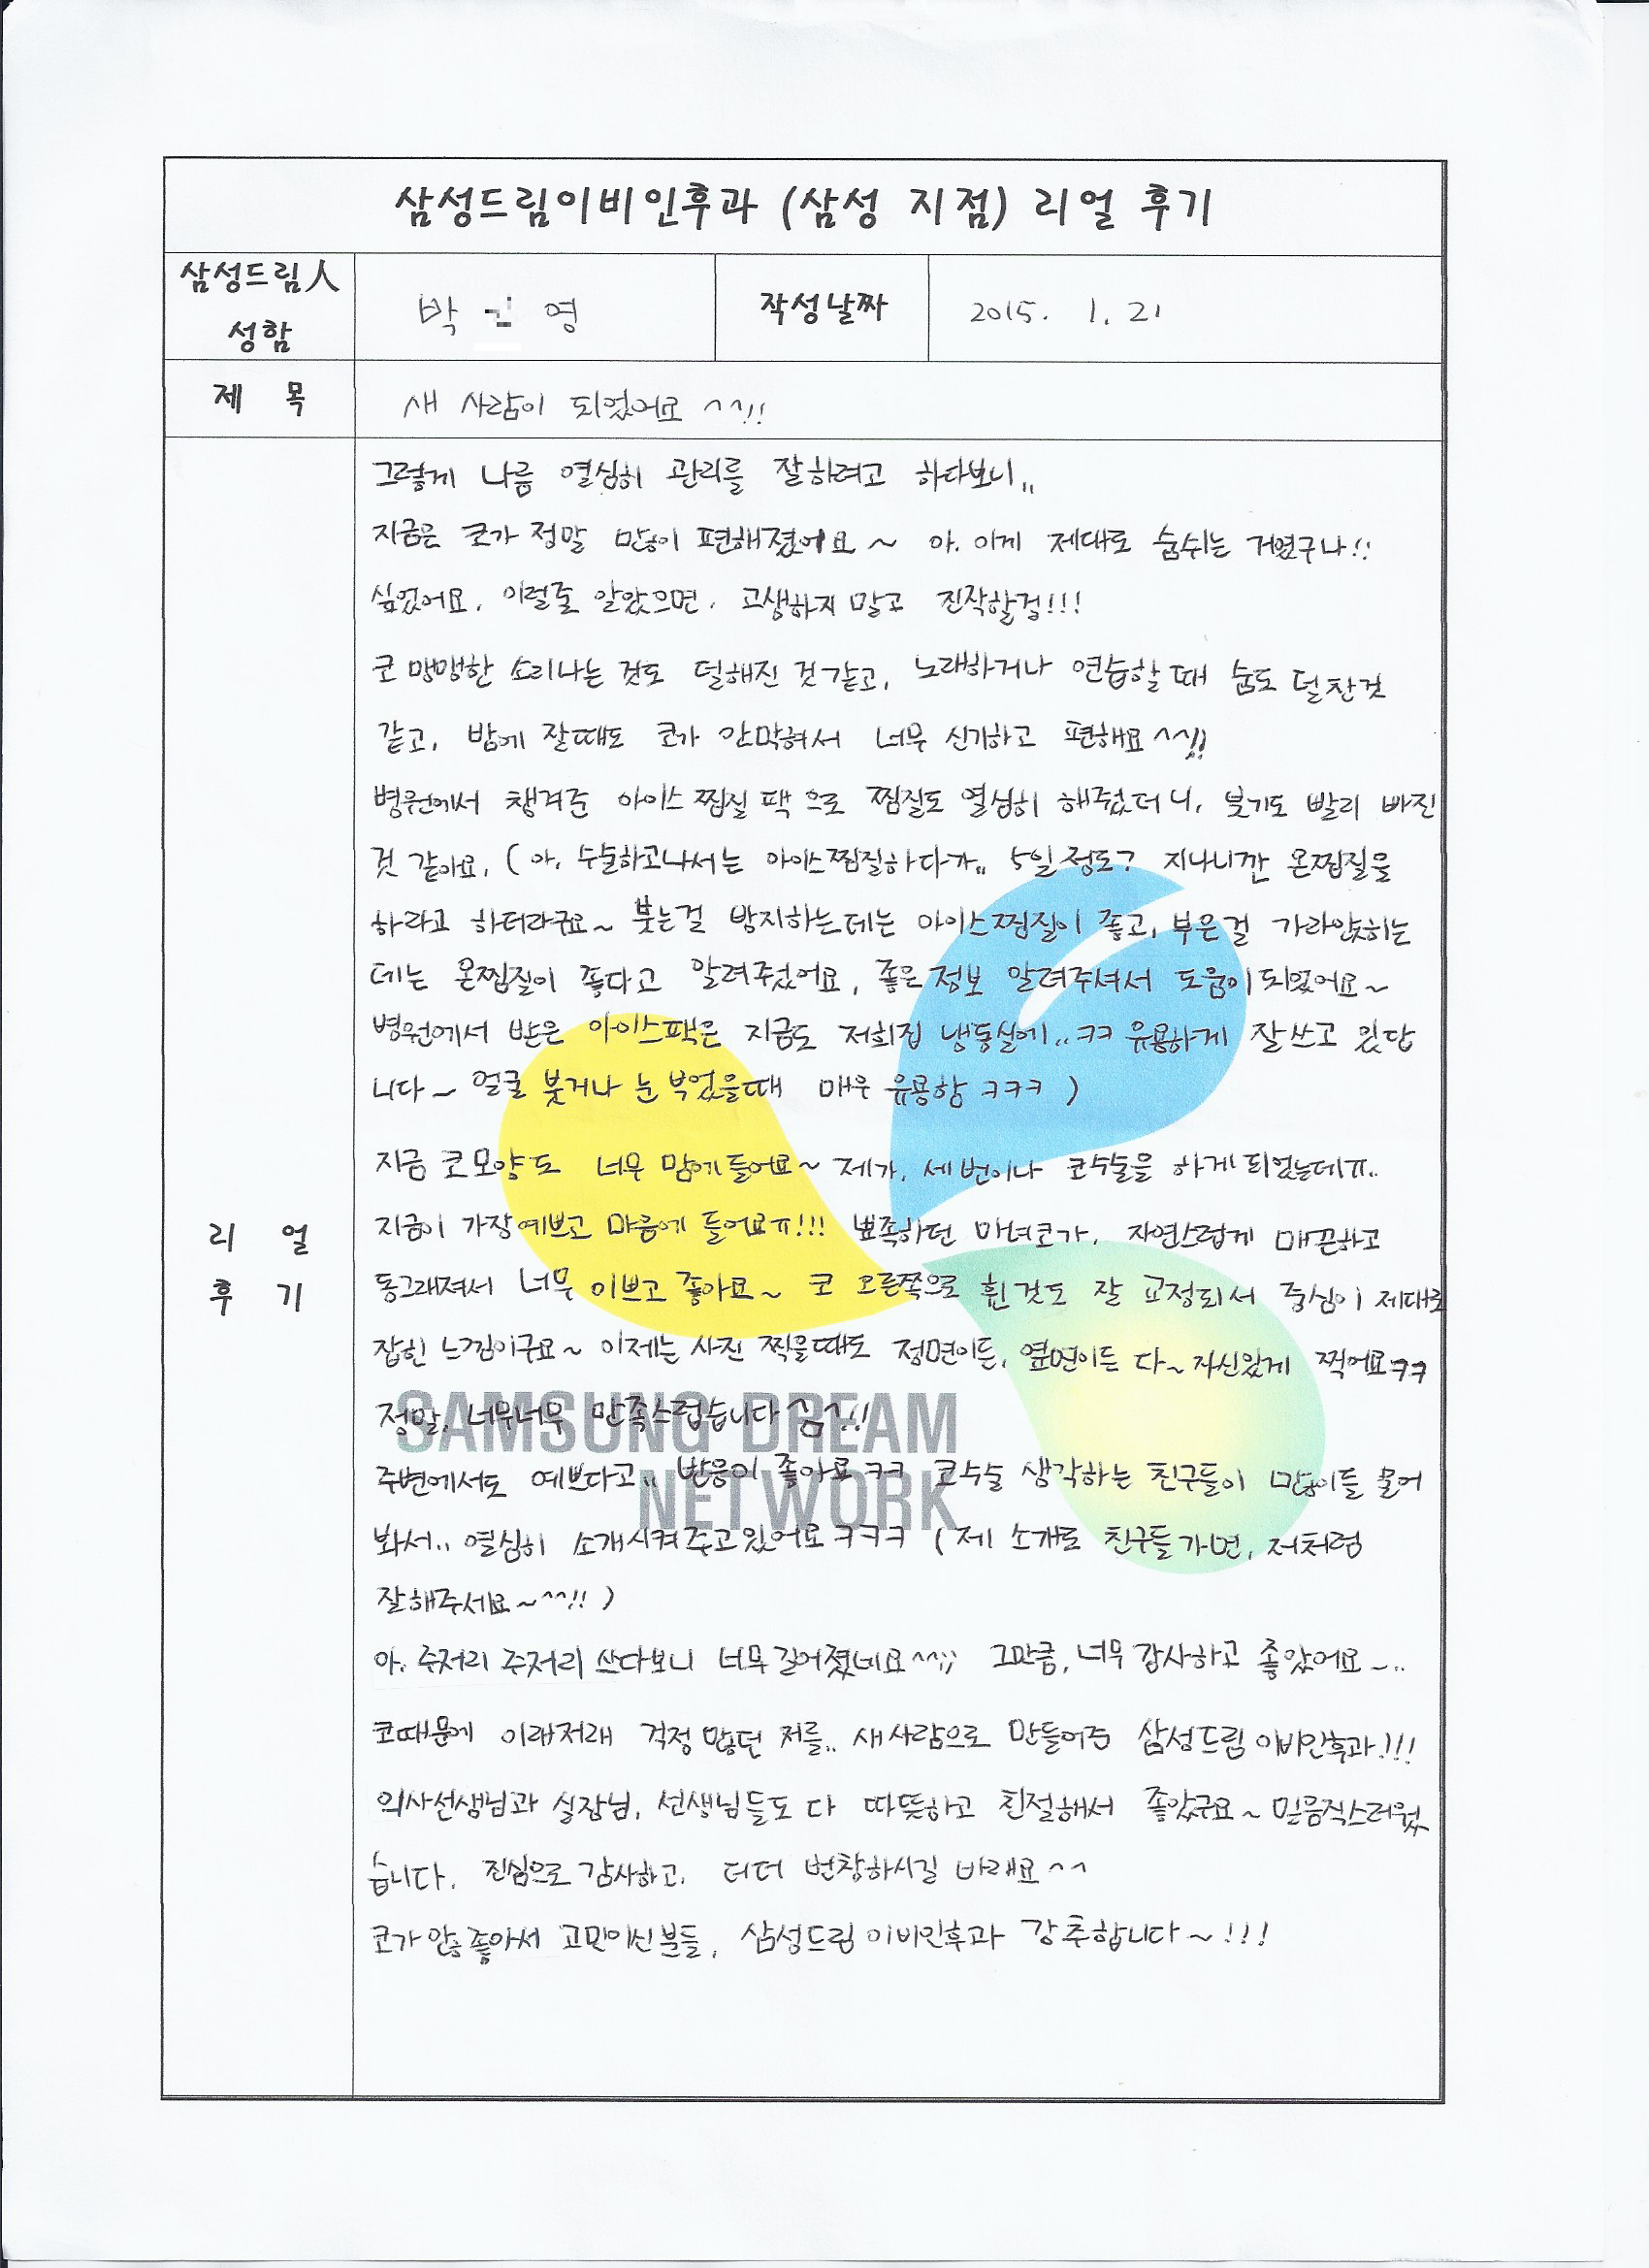 삼성드림이비인후과 (삼성 지점) 리얼 후기
삼성드림人
성함
박 영
작성날짜
2015. 1. 21
제 목
새 사람이 되었어요 ^^!!
그렇게 나름 열심히 관리를 잘하려고 하다보니..
지금은 코가 정말 많이 편해졌어요~ 아. 이게 제대로 숨쉬는 거였구나!!
싶었어요. 이럴줄 알았으면. 고생하지 말고 진작할걸!!!
코 맹맹한 소리나는 것도 덜해진 것같고, 노래하거나 연습할때 숨도 덜찬것
같고, 밤에 잘때도 코가 안막혀서 너무 신기하고 편해요^^!!
병원에서 챙겨준 아이스 찜질 팩으로 찜질도 열심히 해주었더니, 붓기도 빨리 빠진
것 같아요. (아. 수술하고나서는 아이스찜질하다가.. 5일정도? 지나니깐 온찜질을
하라고 하더라구요~ 붓는걸 방지하는데는 아이스찜질이 좋고, 부은걸 가라앉히는
데는 온찜질이 좋다고 알려주셨어요. 좋은정보 알려주셔서 도움이되었어요~
병원에서 받은 아이스팩은 지금도 저희집 냉동실에..ㅋㅋ 유용하게 잘쓰고 있답
니다~ 얼굴 붓거나 눈 부었을때 매우 유용함 ㅋㅋㅋ )
지금 코모양도 너무 맘에들어요~ 제가. 세번이나 코수술을 하게되었는데ㅠ..
지금이 가장예쁘고 마음에 들어요ㅠ!!! 뾰족하던 마녀코가. 자연스럽게 매끈하고
동그래져서 너무 이쁘고 좋아요~ 코 오른쪽으로 휜것도 잘 교정되서 중심이 제대로
잡힌 느낌이구요~ 이제는 사진 찍을때도 정면이든, 옆면이든 다~자신있게 찍어요ㅋㅋ
정말. 너무너무 만족스럽습니다 ^^!!
주변에서도 예쁘다고.. 반응이 좋아요ㅋㅋ 코수술 생각하는 친구들이 많이들 물어
봐서.. 열심히 소개시켜주고있어요ㅋㅋㅋ (제 소개로 친구들가면, 저처럼
잘해주세요~^^!! )
아. 주저리 주저리 쓰다보니 너무길어졌네요^^;; 그만큼, 너무 감사하고 좋았어요~..
코때문에 이래저래 걱정 많던 저를.. 새사람으로 만들어준 삼성드림이비인후과!!!
의사선생님과 실장님, 선생님들도 다 따뜻하고 친절해서 좋았구요~믿음직스러웠
습니다. 진심으로 감사하고. 더더 번창하시길 바래요^^
코가 안좋아서 고민이신분들, 삼성드림이비인후과 강추합니다~!!!
리 얼
후 기
SAMSUNG DREAM
NETWORK